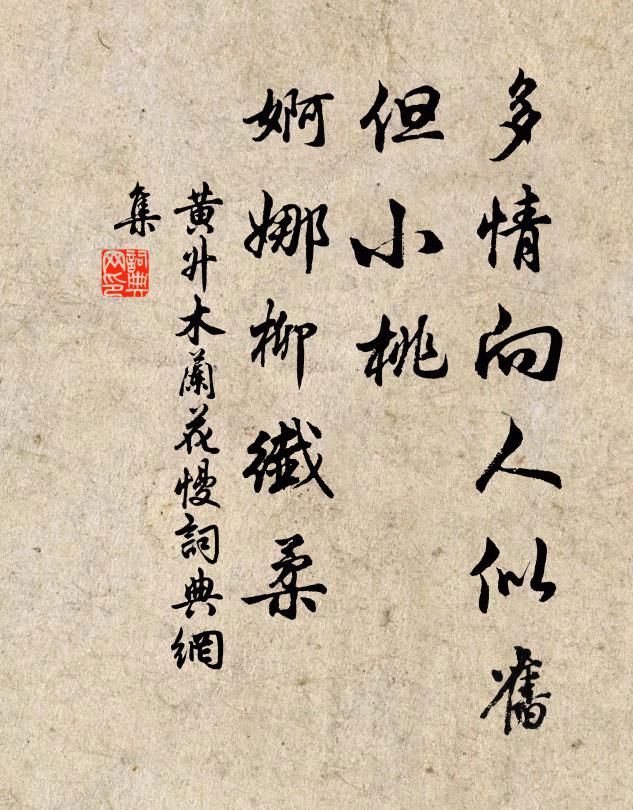 多情向人似舊
但小桃
婀娜柳纖柔
黃升木蘭花慢詞典網
集
詞典
网印